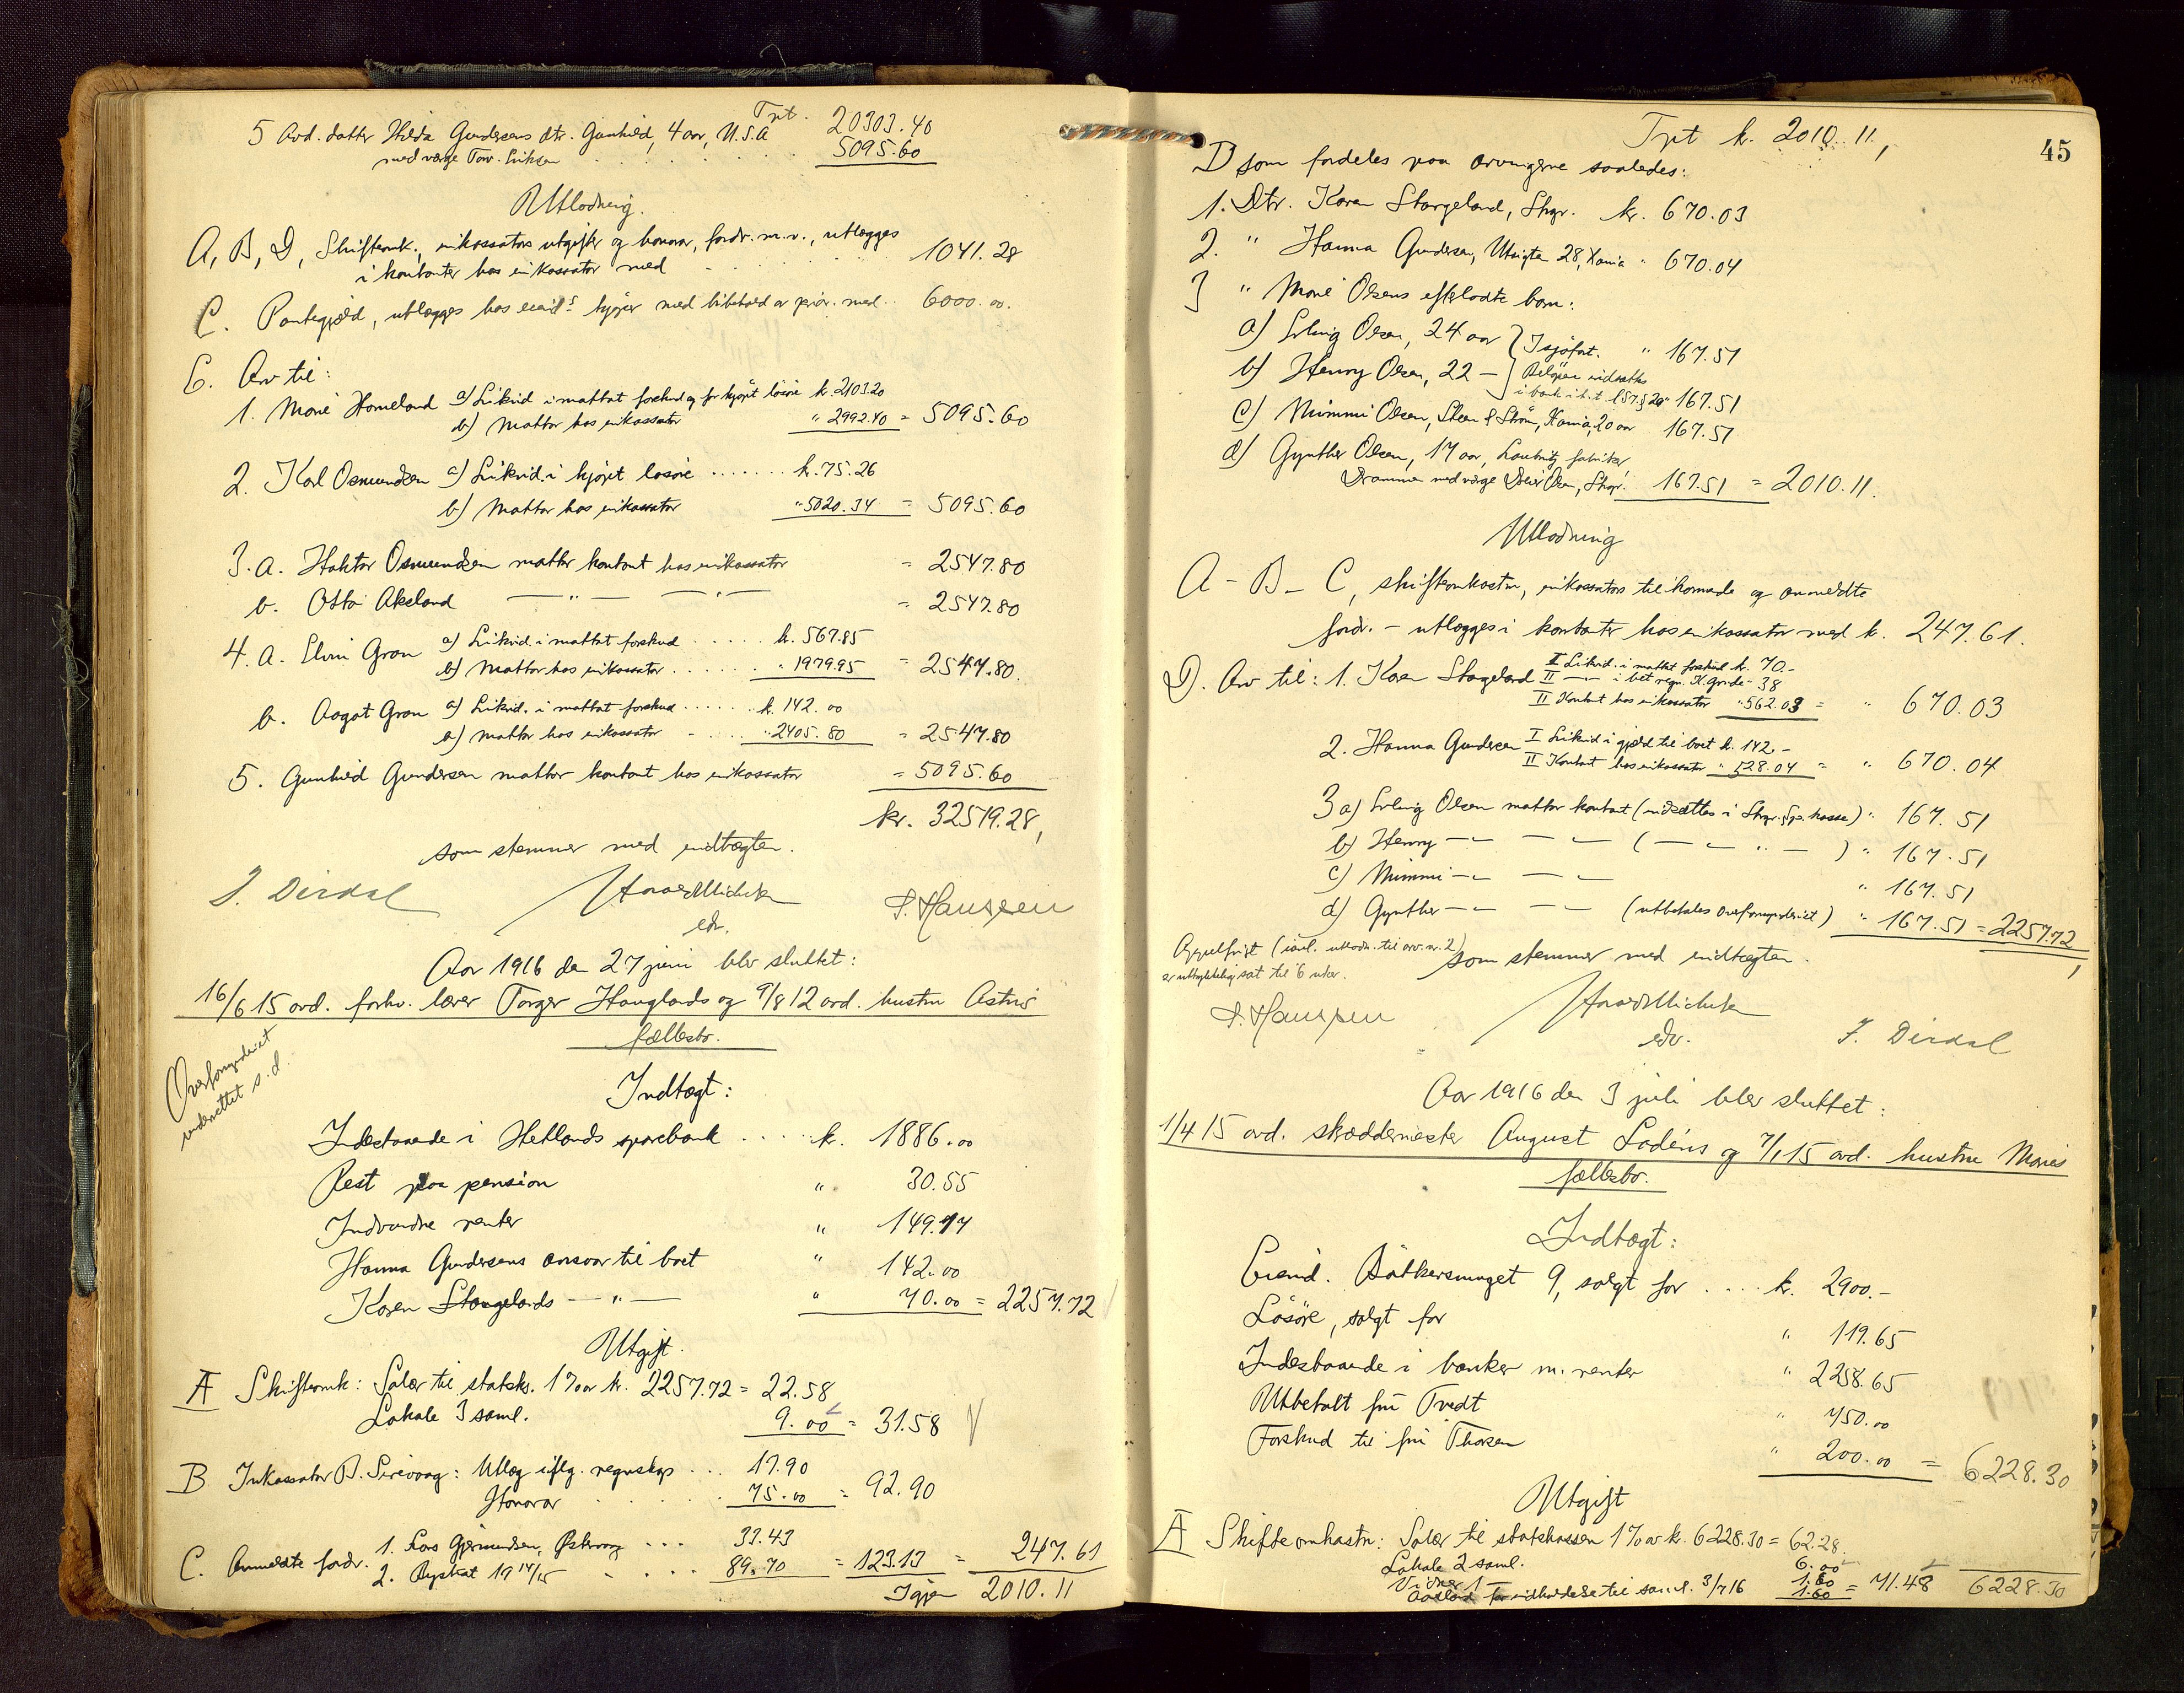 Trpt. 20303.40
5 Avd. datter Hilda Gundersens dtr. Gunhild, 4 aar, U.S.A
med værge Tov. Eriksen . . . . . 5095.60
Utlodning.
A, B, D, Skifteomk., inkassators utgifter og honorar, fordr. m.v., utlægges
i kontanter hos inkassator med 1041.28
C. Pantegjæld, utlægges hos eiend.s kjøper med bibehold av prior. med .. 6000.00.
E. Arv til:
1. Marie Homeland a) Likvid i mottat forskud og for kjøpt løsøre k. 2103.20
b) Mottar hos inkassator " 2992.40 = 5095.60
2. Karl Osmundsen a) Likvid. i kjøpt løsøre ...... k. 75.26
b) Mottar hos inkassator " 5020.34 = 5095.60
3. a. Haktor Osmundsen mottar kontant hos inkassator = 2547.80
b. Otto Aksland — " — — " — = 2547.80
4. a. Elvin Gran a) Likvid. i mottat forskud ..... k. 567.85
b) Mottar hos inkassator ...... " 1979.95 = 2547.80.
b. Aagot Gran a) Likvid. i mottat forskud ...... k. 142.00
a) mottar hos inkassator - .... " 2405.80 = 2547.80
5. Gunhild Gundersen mottar kontant hos inkassator = 5095.60
kr. 32519.28,
som stemmer med indtægten.
J. Dirdal
edr.
P. Hanssen
Aar 1916 den 27 juni blev sluttet:
16/6 15 avd. forhv. lærer Torger Hauglands og 9/8 12 avd. hustru Astris
fællesbo.
Overformynderiet
underrettet s.d.
Indtægt:
Indestaaende i Hetlands sparebank .... k. 1886.00
Rest paa pension " 30.55
Indvundne renter " 149.17
Hanna Gundersens ansvar til boet " 142.00
Karen Stangelands — " — " 70.00 = 2257.72
Utgift.
A Skifteomk: Salær til statsk. 1% av k. 2257.72 = 22.58
Lokale 3 saml. 9.00 = 31.58
B Inkassator B. Sirevaag: Utlæg iflg. regnskap ... 17.90
Honorar . . . . 75.00 = 92.90
C. Anmeldte fordr. 1. Lars Gjermundsen, Østervåg ... 33.43
2. Byskat 19 14/15 . . . . 89.70 = 123.13 = 247.61
Igjen 2010.11
45
Trpt k. 2010.11,
D som fordeles paa arvingerne saaledes:
1. Dtr. Karen Stangeland, Stvgr. kr. 670.03
2. " Hanna Gundersen, Utsigten 28, Xania " 670.04
3 " Marie Olsens efterladte barn:
a) Erling Olsen, 24 aar } I sjøfart. " 167.51
b) Henry Olsen, 22 — } Beløpene indsættes
i bank i h.t. 167.51
c) Mimmi Olsen, Steen & Strøm, Kania, 20 aar 167.51
d) Gynther Olsen, 17 aar, fabrikker,
Drammen med værge Olsen, Stvgr. 167.51 = 2010.11.
Utlodning
A - B - C, skifteomkostn, inkassators tilkomende og anmeldte
fordr. - utlægges i kontanter hos inkassator med k. 247.61.
D. Arv til: 1. Karen Stangeland I Likvid. i mottat forskud k. 70.-
II — i bet. regn. 38
II Kontant hos inkassator " 562.03 = " 670.03
2. Hanna Gundersen I Likvid i gjæld til boet k. 142.-
II Kontant hos inkassator " 528.04 = " 670.04
3 a) Erling Olsen mottar kontant (indsættes i Stvgr. Sp.kasse) " 167.51
b) Henry — " — — — ( — — " — ) " 167.51
c) Mimmi — " — — — " 167.51
d) Gynther — " — — — (utbetales overformynderiet) " 167.51 = 2257.72,
Appelfrist (inkl. utlodn. til arv. nr. 2)
er uttrykkelig sat til 6 uker.
som stemmer med indtægten.
P. Hanssen
edr.
J. Dirdal
Aar 1916 den 3 juli blev sluttet:
1/4 15 avd. skræddermester August Lodéns og 7/1 15 avd. hustru Maries
fællesbo.
Indtægt:
Eiend. Bøtkersmuget 9, solgt for .... k. 2900.-
Løsøre, solgt for " 119.65
Indestaaende i banker m. renter " 2258.65
Utbetalt fru Tvedt " 750.00
Forskud til fru Thorsen " 200.00 = 6228.30
Utgift
A Skifteomkostn: Salær til statskassen 1% av k. 6228.30 = 62.28.
Lokale 2 saml. 6.00
Vidner 1 — 1.60
for indkaldelse til saml. 3/7 16 1.60 = 71.48 6228.30